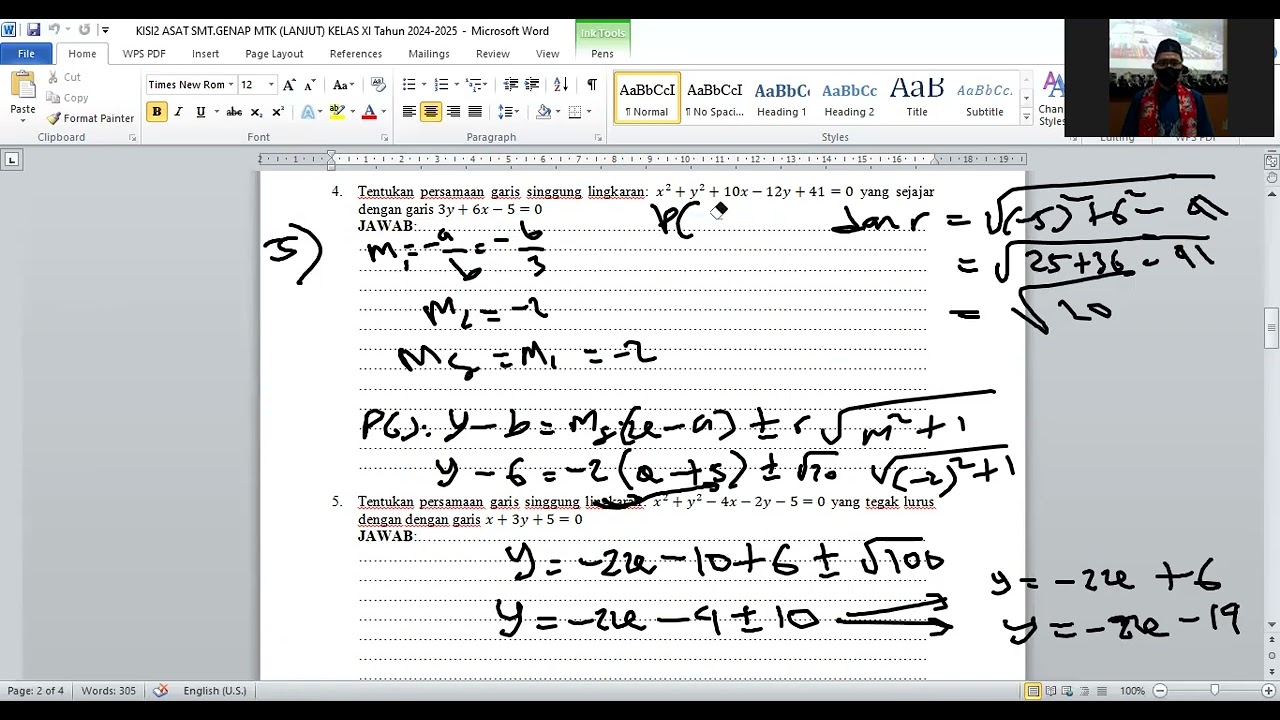 KISI2 ASAT SMT.GENAP MTK (LANJUT) KELAS XI Tahun 2024-2025 - Microsoft Word
Ink Tools
File Home WPS PDF Insert Page Layout References Mailings Review View Pens
Paste
Cut
Copy
Format Painter
Times New Rom 12
AaBbCcI AaBbCcI AaBbCc AaBbCc AaB AaBbCc.
¶ Normal ¶ No Spaci... Heading 1 Heading 2 Title Subtitle
Clipboard Font Paragraph Styles
4. Tentukan persamaan garis singgung lingkaran: x² + y² + 10x − 12y + 41 = 0 yang sejajar
dengan garis 3y + 6x − 5 = 0
JAWAB:
P(
dan r = √(-5)² + 6² - 41
= √25+36 - 41
= √20
m₁ = -a/b = -6/3
m₁ = -2
ms = m₁ = -2
PGS: y - b = ms(x - a) ± r √m² + 1
y - 6 = -2(x + 5) ± √20 √(-2)² + 1
5. Tentukan persamaan garis singgung lingkaran: x² + y² − 4x − 2y − 5 = 0 yang tegak lurus
dengan dengan garis x + 3y + 5 = 0
JAWAB:
y = -2x - 10 + 6 ± √100
y = -2x - 4 ± 10
y = -2x + 6
y = -2x - 14
Page: 2 of 4 Words: 305 English (U.S.) 100%